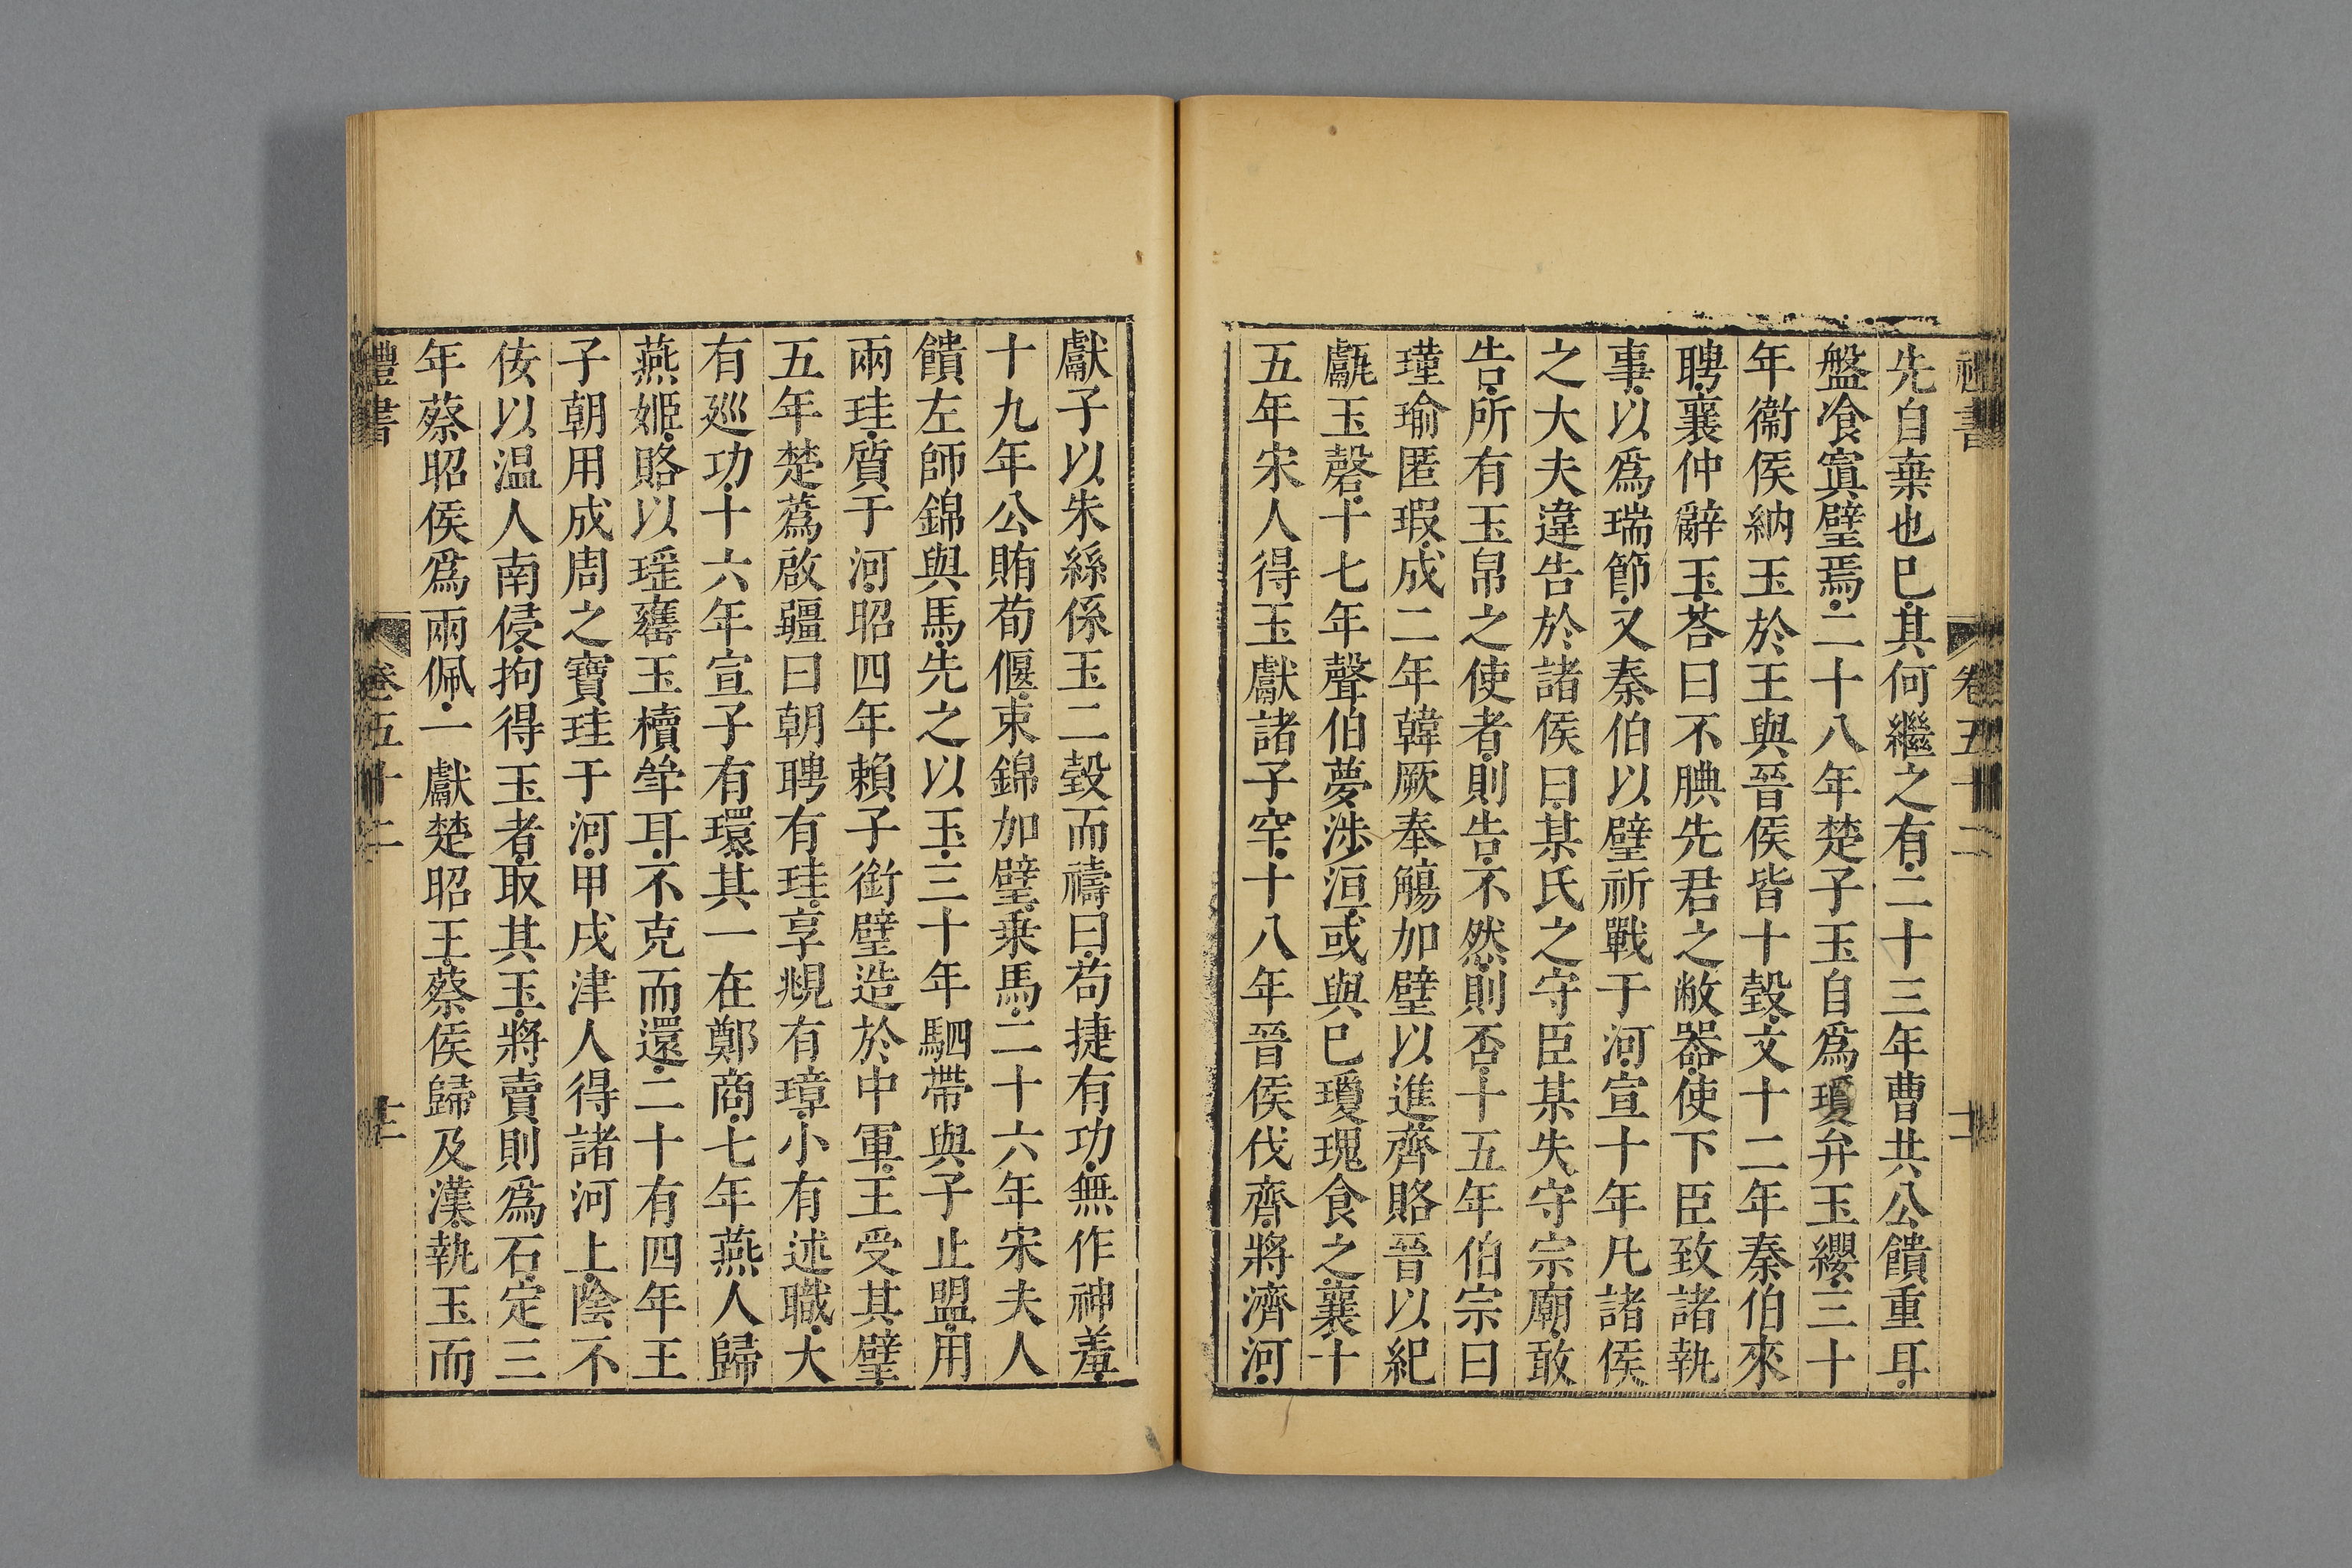 禮書
卷五十二
先自棄也已其何繼之有二十三年曹共公饋重耳
盤飧寘璧焉二十八年楚子玉自爲瓊弁玉纓三十
年衞侯納玉於王與晉侯皆十瑴文十二年秦伯來
聘襄仲辭玉荅曰不腆先君之敝器使下臣致諸執
事以爲瑞節又秦伯以璧祈戰于河宣十年凡諸侯
之大夫違告於諸侯曰某氏之守臣某失守宗廟敢
告所有玉帛之使者則告不然則否十五年伯宗曰
瑾瑜匿瑕成二年韓厥奉觴加璧以進齊賂晉以紀
甗玉磬十七年聲伯夢涉洹或與已瓊瑰食之襄十
五年宋人得玉獻諸子罕十八年晉侯伐齊將濟河
獻子以朱絲係玉二瑴而禱曰苟捷有功無作神羞
十九年公賄荀偃束錦加璧乗馬二十六年宋夫人
饋左師錦與馬先之以玉三十年駟帶與子止盟用
兩珪質于河昭四年賴子銜璧造於中軍王受其璧
五年楚蒍啟疆曰朝聘有珪享覜有璋小有述職大
有廵功十六年宣子有環其一在鄭商七年燕人歸
燕姬賂以瑶罋玉櫝斝耳不克而還二十有四年王
子朝用成周之寶珪于河甲戌津人得諸河上陰不
佞以温人南侵拘得玉者取其玉將賣則爲石定三
年蔡昭侯爲兩佩一獻楚昭王蔡侯歸及漢執玉而
禮書
卷五十二